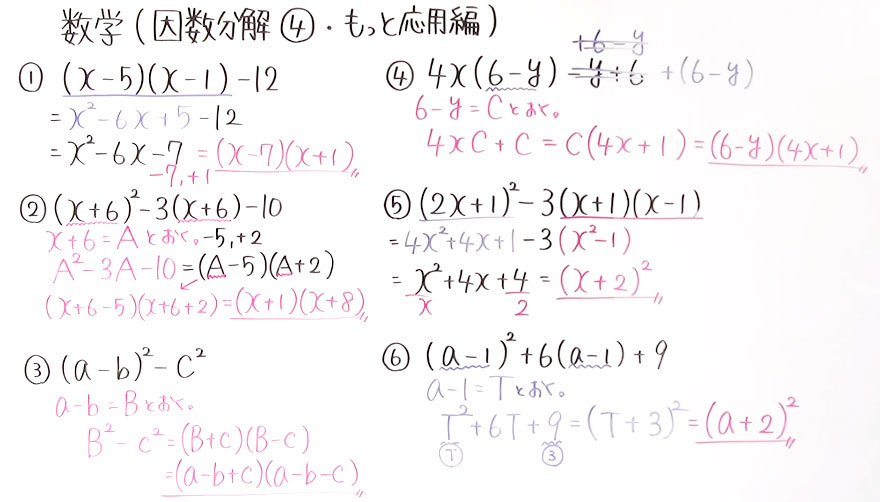 数学(因数分解④・もっと応用編)
① (x-5)(x-1)-12
=x²-6x+5-12
=x²-6x-7=(x-7)(x+1)
-7,+1
② (x+6)²-3(x+6)-10
x+6=Aとおく。-5,+2
A²-3A-10=(A-5)(A+2)
(x+6-5)(x+6+2)=(x+1)(x+8)
③ (a-b)²-c²
a-b=Bとおく。
B²-c²=(B+c)(B-c)
=(a-b+c)(a-b-c)
+6-y
④ 4x(6-y)=y+6 +(6-y)
6-y=Cとおく。
4xC+C=C(4x+1)=(6-y)(4x+1)
⑤ (2x+1)²-3(x+1)(x-1)
=4x²+4x+1-3(x²-1)
=x²+4x+4=(x+2)²
x 2
⑥ (a-1)²+6(a-1)+9
a-1=Tとおく。
T²+6T+9=(T+3)²=(a+2)²
T 3